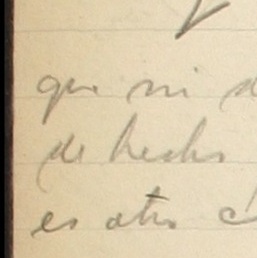 que ni
de hecho
es otro